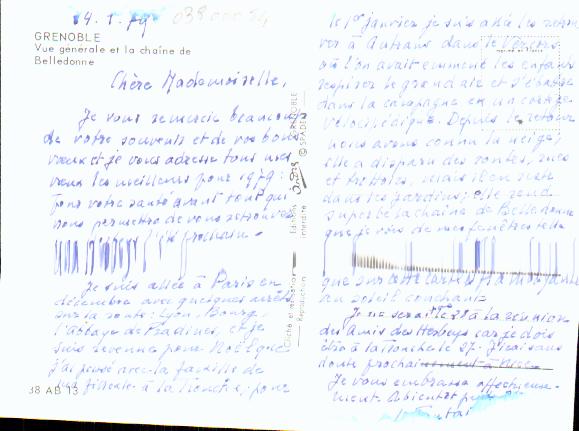 4.1.79 038 000 54
GRENOBLE
Vue générale et la chaîne de
Belledonne
Chère Mademoiselle,
Je vous remercie beaucoup
de votre souvenir et de vos bons
vœux et je vous adresse tous mes
vœux les meilleurs pour 1979:
votre santé avant tout qui
vous permettre de vous retrouver
prochain
Je suis allée à Paris en
décembre avec quelques arrêts
sur la route: Lyon, Bourg,
l'abbaye de Pradines, et je
suis revenue pour Noël que
j'ai passé avec la famille de
à la Tronche; pour
38 AB 13
Cliché et
Reproduction
Editions
interdite
GRENOBLE
© SPADEM
le 1er janvier je suis allé les retrou
ver à Autrans dans le Vercors
où l'on avait emmené les enfants
respirer le grand air et s'ébattre
dans la campagne en un cortège
vélocipédique. Depuis le retour
nous avons connu la neige;
elle a disparu des routes, rues
et trottoirs, mais il en reste
dans les jardins; elle rend
superbe la chaîne de Belledonne
que je vois de mes fenêtres telle
que sur cette carte
au soleil couchant.
Je ne serai à la réunion
des Amis des car je dois
être à la Tronche le 27. J'irai sans
doute prochainement à Nice.
Je vous embrasse affectueuse-
ment. A bientôt